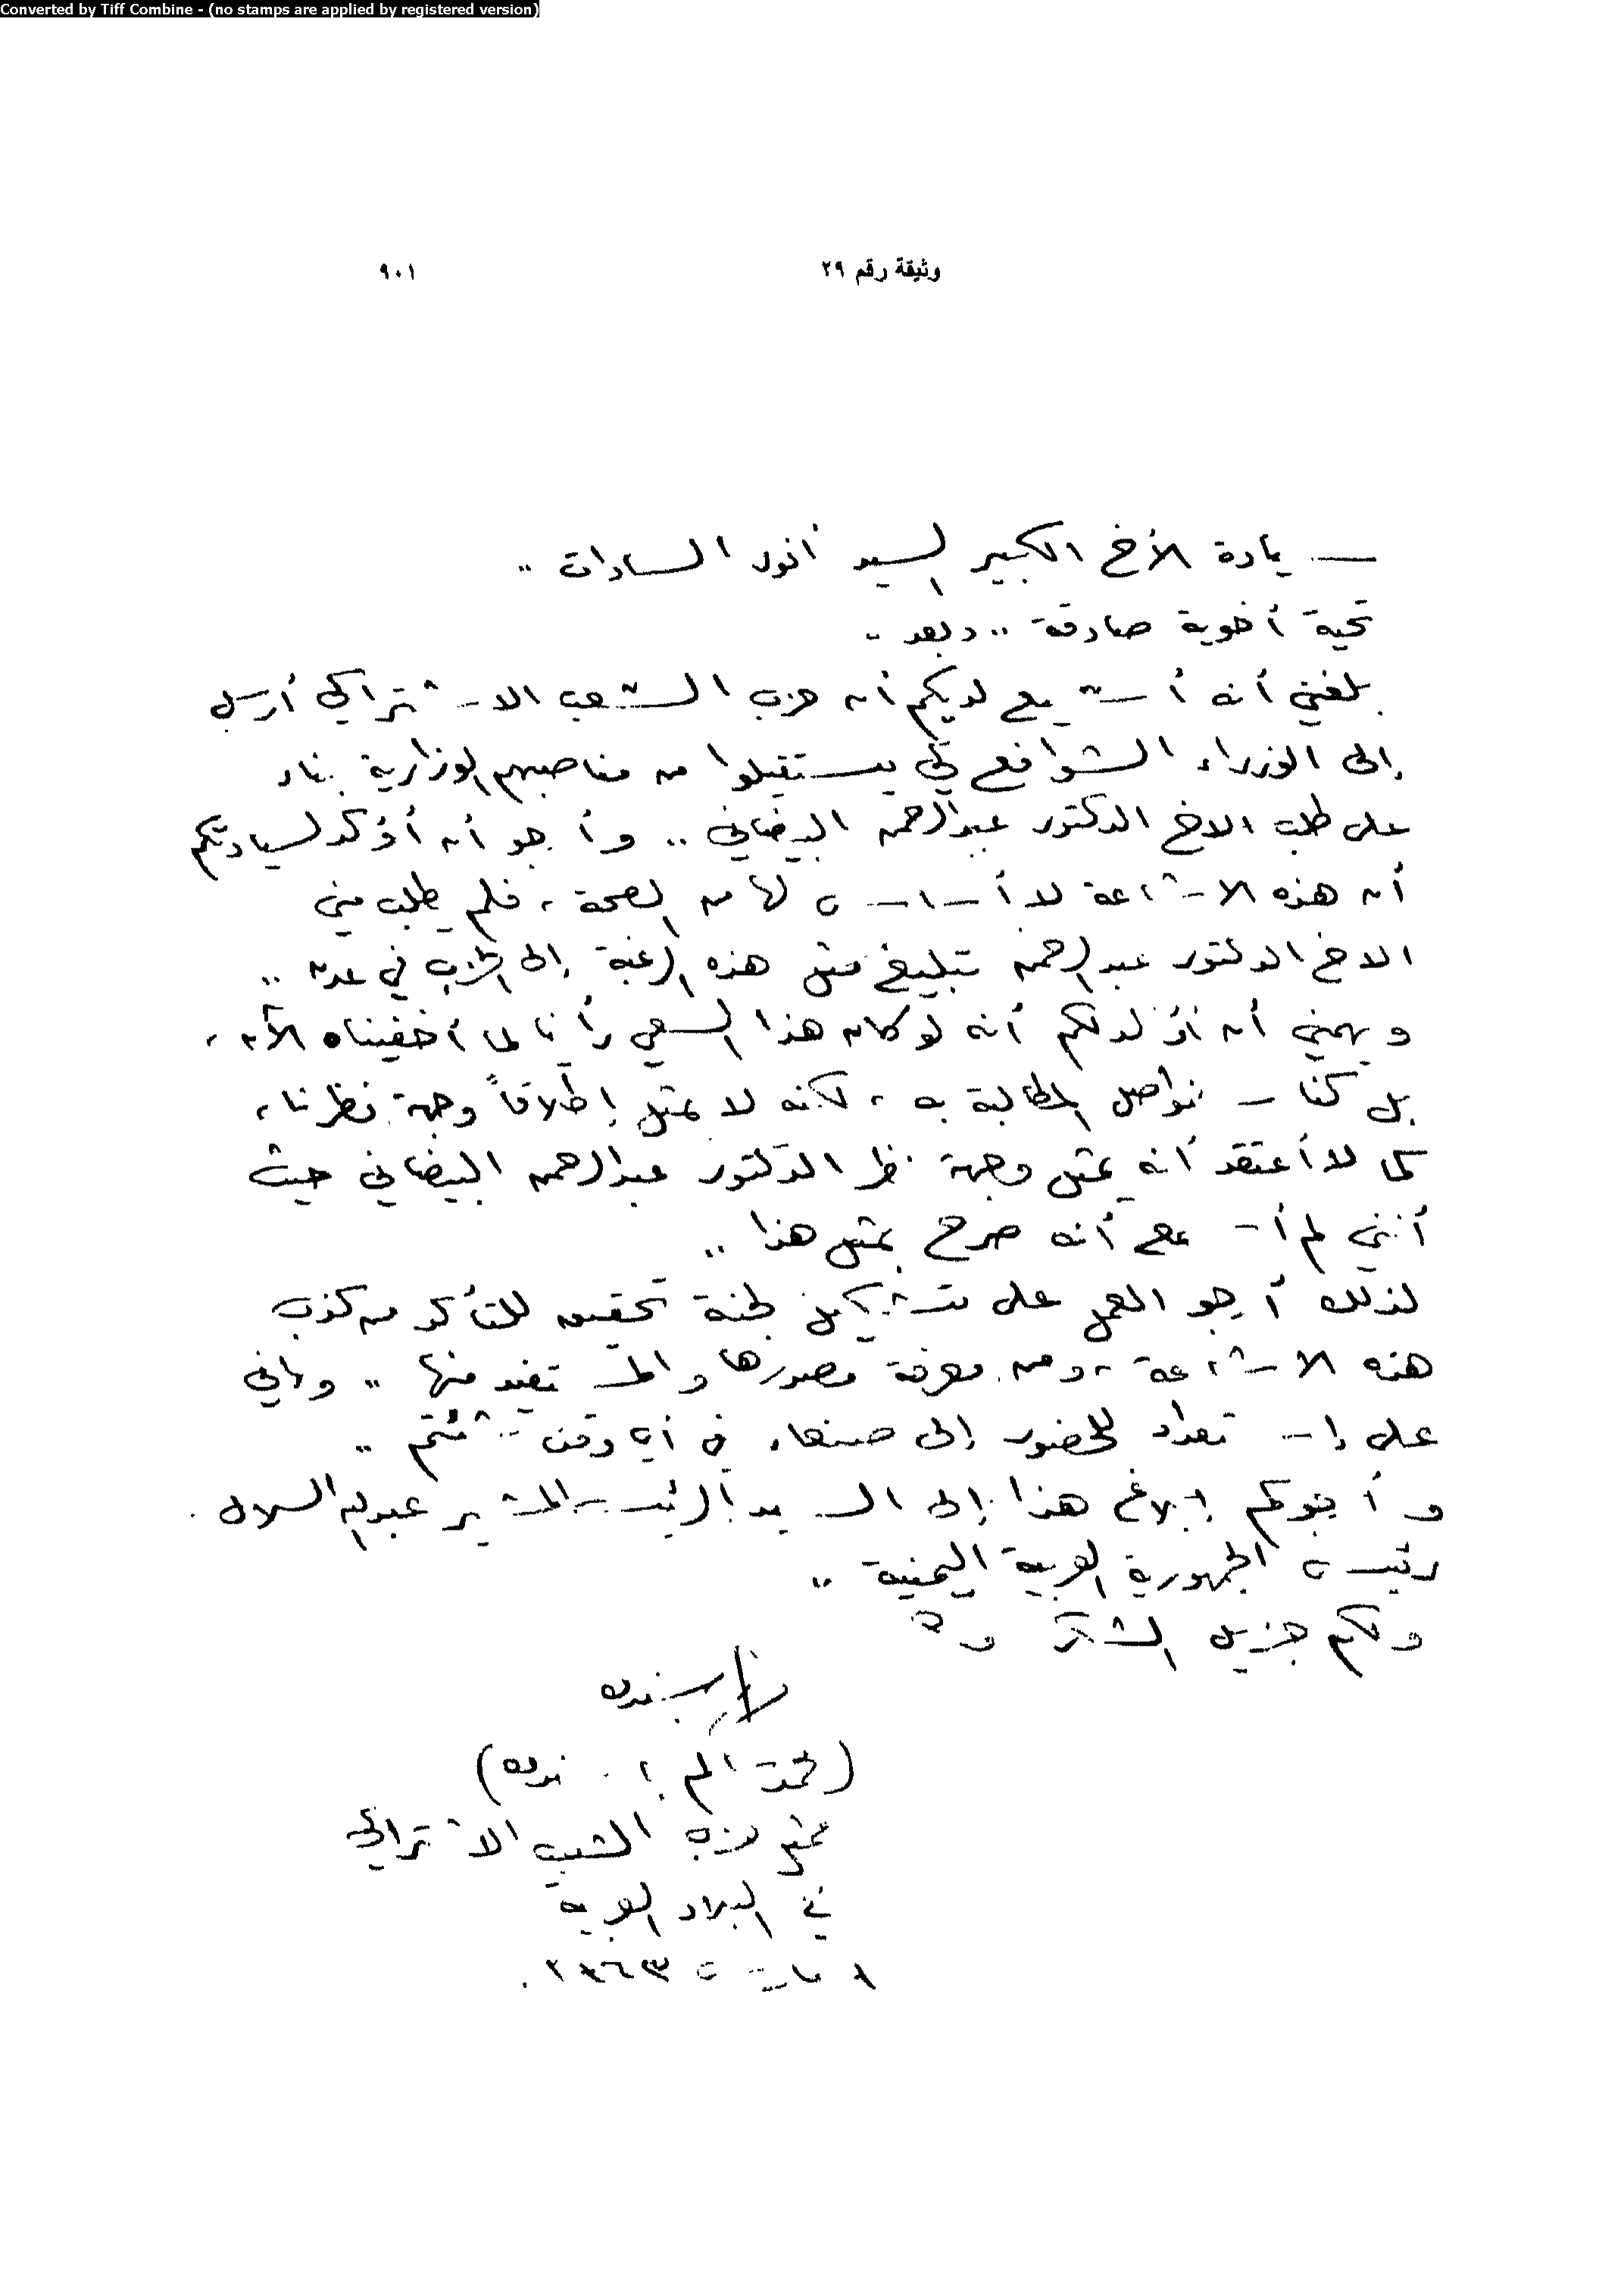 Converted by Tiff Combine - (no stamps are applied by registered version)
وثيقة رقم ٢٩ ٩٠١
سيادة الأخ الكبير السيد أنور السادات ..
تحية أخوية صادقة .. وبعد ..
بلغني أنه أشيع لديكم أن حزب الشعب الاشتراكي أرسل
إلى الوزراء الشوافع لكي يستقيلوا من مناصبهم الوزارية بناء
على طلب الاخ الدكتور عبدالرحمن البيضاني .. وأرجو أن أؤكد لسيادتكم
أن هذه الاشاعة لا أساس لها من الصحة ، فلم يطلب مني
الاخ الدكتور عبدالرحمن تبليغ مثل هذه الرغبة إلى الحزب في عدن ..
ويهمني أن أؤكد لكم أنه لو كان هذا السعي رأينا لما أخفيناه الآن ،
بل كنا نواصل المطالبة به ، لكنه لا يمثل إطلاقاً وجهة نظرنا ،
كما لا أعتقد أنه يمثل وجهة نظر الدكتور عبدالرحمن البيضاني حيث
أنني لم أسمع أنه صرح بمثل هذا ..
لذلك أرجو العمل على تشكيل لجنة تحقيق للتأكد من كذب
هذه الاشاعة ، ومن معرفة مصدرها والمستفيد منها .. وإني
على إستعداد للحضور إلى صنعاء في أي وقت شئتم ..
و أرجوكم إبلاغ هذا إلى السيد الرئيس المشير عبدالله السلال .
رئيس الجمهورية العربية اليمنية ..
ولكم جزيل الشكر و
(محمد سالم باسندوه)
ممثل حزب الشعب الاشتراكي
في البلاد العربية
مارس ١٩٦٣ .